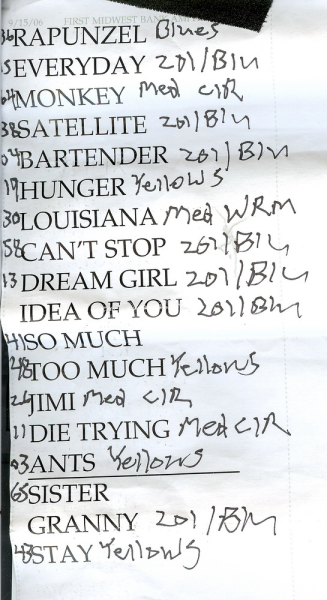 9/15/06 FIRST MIDWEST BANK AMP
36 RAPUNZEL Blues
EVERYDAY 201/Blu
MONKEY Med CIR
38 SATELLITE 201/Blu
04 BARTENDER 201/Blu
19 HUNGER Yellows
30 LOUISIANA Med WRM
58 CAN'T STOP 201/Blu
13 DREAM GIRL 201/Blu
IDEA OF YOU 201/Blu
41 SO MUCH
28 TOO MUCH Yellows
26 JIMI Med CIR
11 DIE TRYING Med CIR
03 ANTS Yellows
65 SISTER
GRANNY 201/Blu
43 STAY Yellows